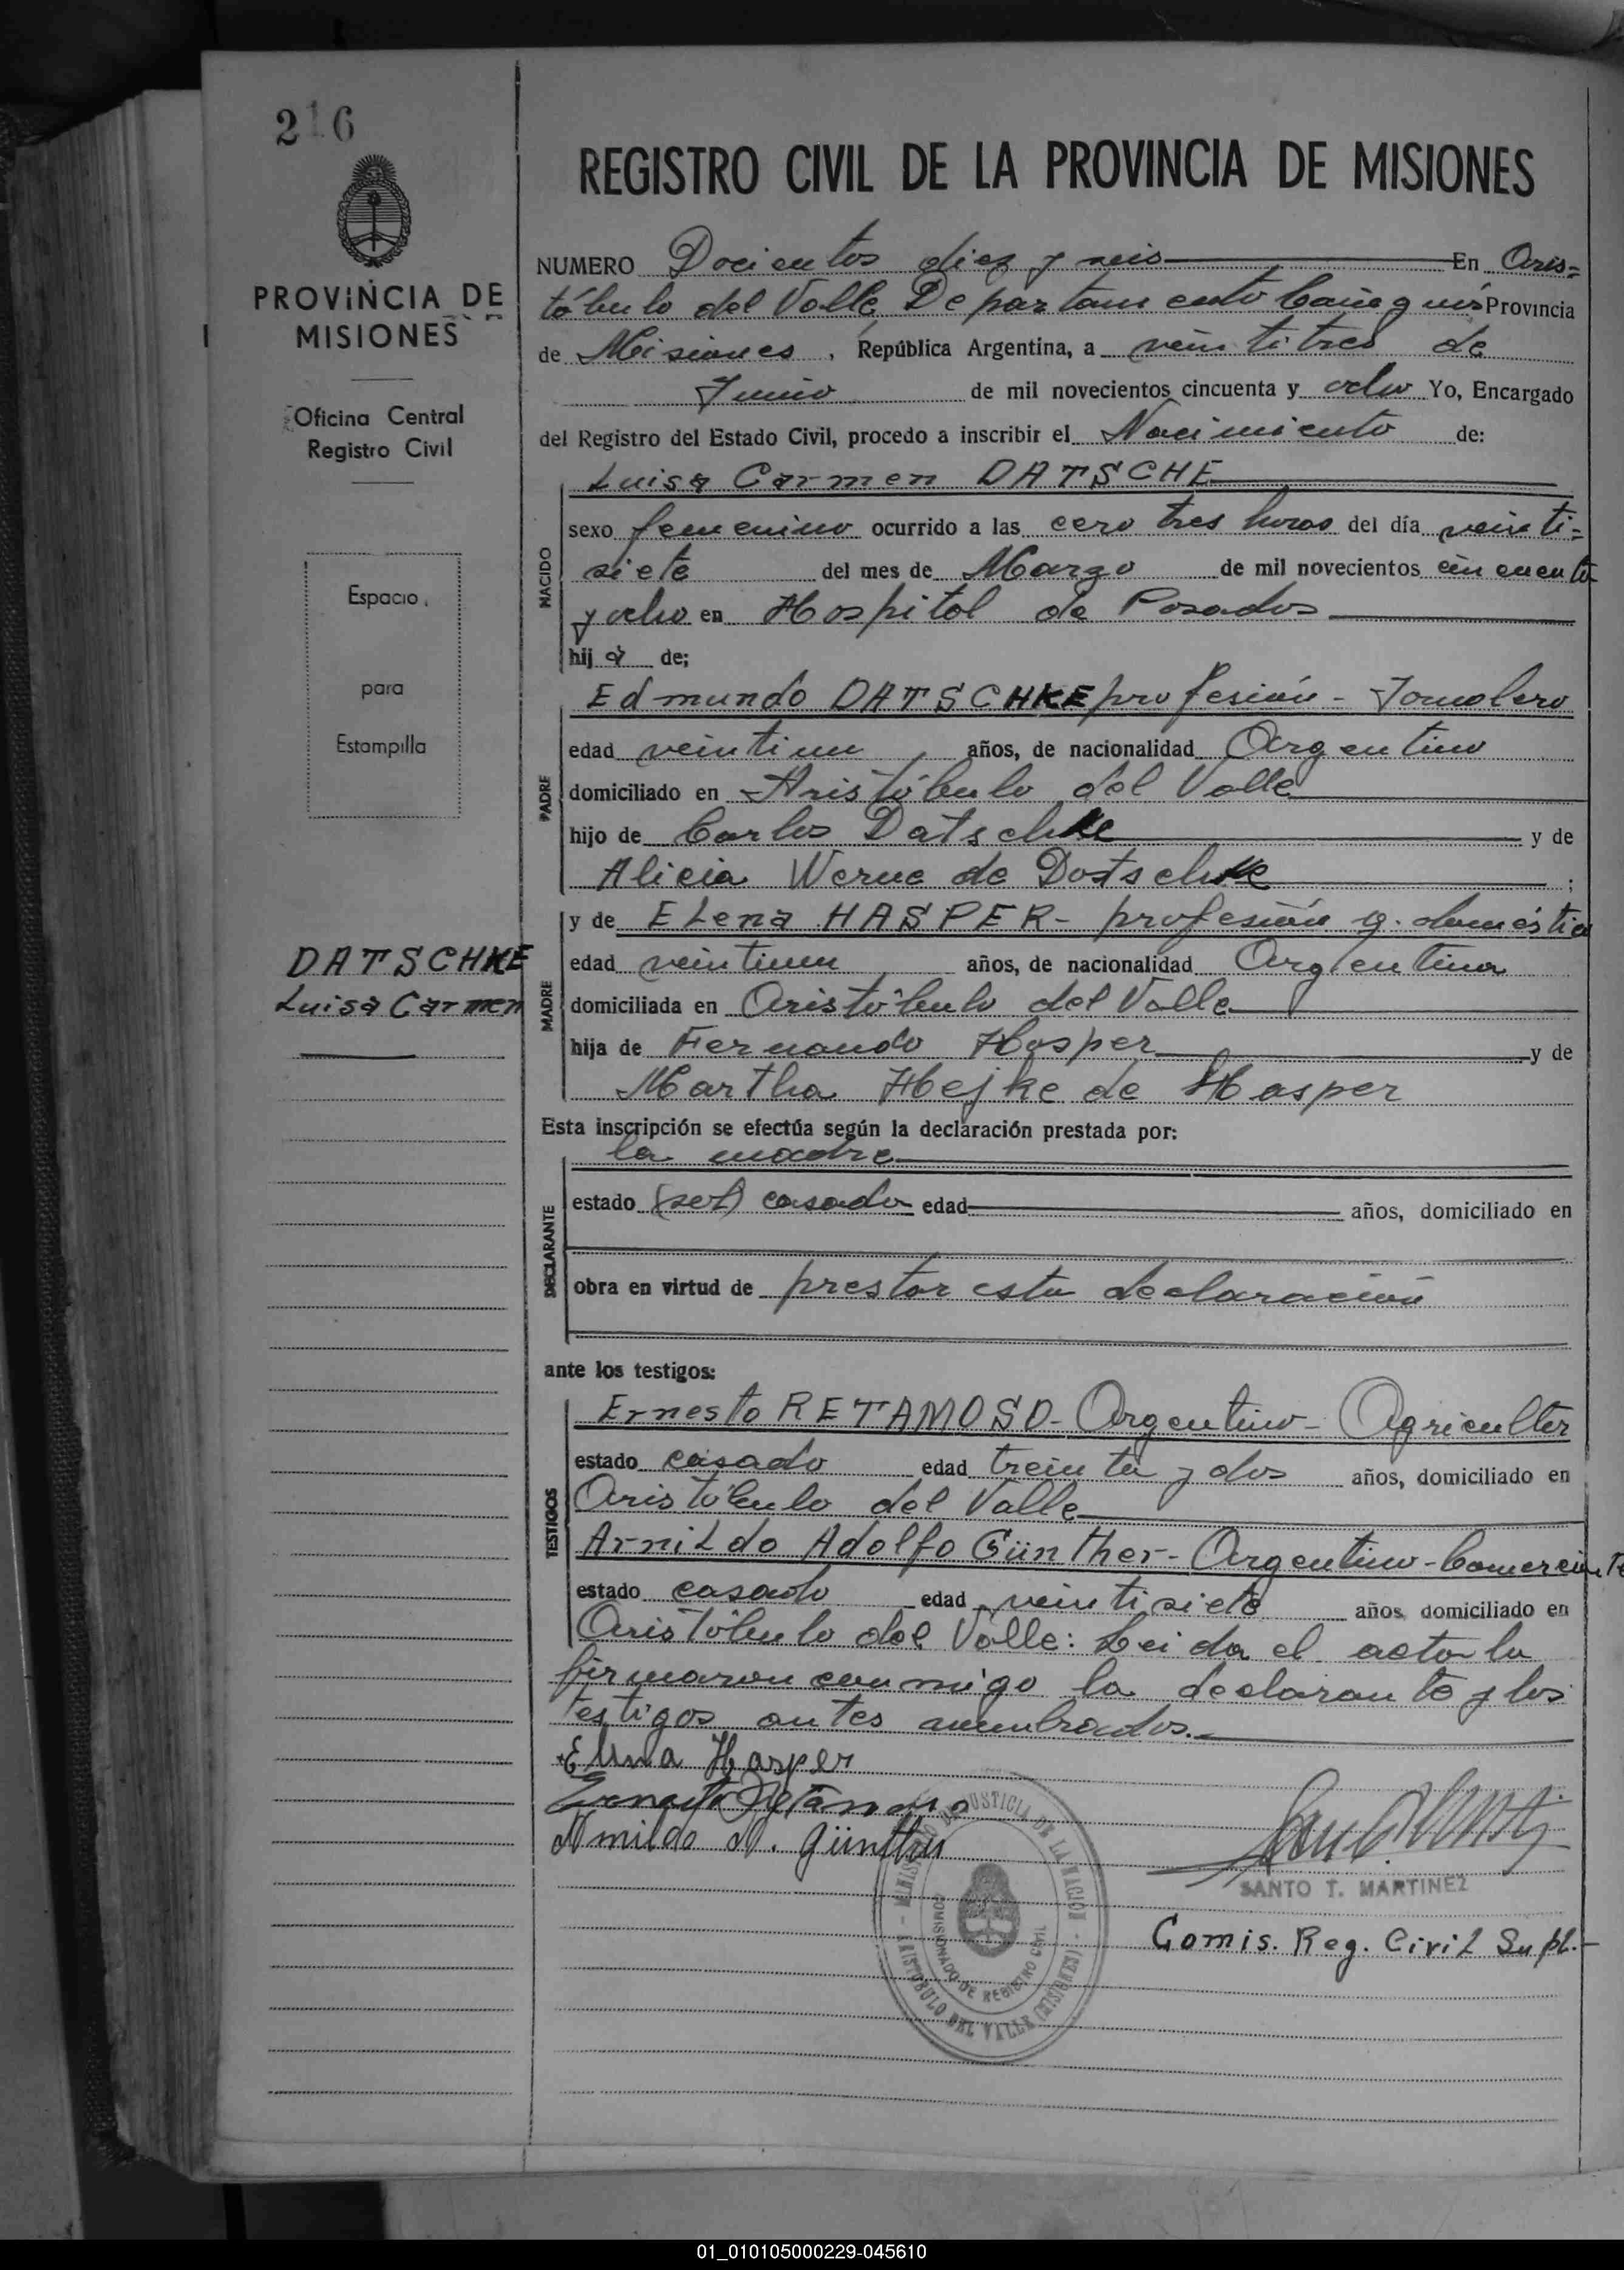 216
PROVINCIA DE
MISIONES
Oficina Central
Registro Civil
Espacio
para
Estampilla
DATSCHKE
Luisa Carmen
REGISTRO CIVIL DE LA PROVINCIA DE MISIONES
NUMERO Docientos diez y seis En Aris=
tóbulo del Valle, Departamento Cainguás Provincia
de Misiones, República Argentina, a veintitres de
Junio de mil novecientos cincuenta y ocho Yo, Encargado
del Registro del Estado Civil, procedo a inscribir el Nacimiento de:
Luisa Carmen DATSCHE
NACIDO
sexo femenino ocurrido a las cero tres horas del día veinti=
siete del mes de Marzo de mil novecientos cincuenta
y ocho en Hospital de Posadas
hija de;
PADRE
Edmundo DATSCHKE profesión - Jornalero
edad veintiun años, de nacionalidad Argentino
domiciliado en Aristóbulo del Valle
hijo de Carlos Datschke y de
Alicia Werne de Datschke ;
MADRE
y de Elena HASPER - profesión q. doméstica
edad veintiun años, de nacionalidad Argentina
domiciliada en Aristóbulo del Valle
hija de Fernando Hasper y de
Martha Hejke de Hasper
Esta inscripción se efectúa según la declaración prestada por:
la madre
DECLARANTE
estado casado edad años, domiciliado en
obra en virtud de prestar esta declaración
ante los testigos:
TESTIGOS
Ernesto RETAMOSO - Argentino - Agricultor
estado casado edad treinta y dos años, domiciliado en
Aristóbulo del Valle
Arnildo Adolfo Günther - Argentino - Comerciante
estado casado edad veintisiete años, domiciliado en
Aristóbulo del Valle: Leida el acta la
firmaron conmigo la declarante y los
testigos antes nombrados.
Elena Hasper
Ernesto Retamoso
Arnildo A. Günther
MINISTERIO DE JUSTICIA DE LA NACION
COMISIONADO DE REGISTRO CIVIL
ARISTOBULO DEL VALLE (MISIONES)
SANTO T. MARTINEZ
Comis. Reg. Civil Supl.
01_010105000229-045610